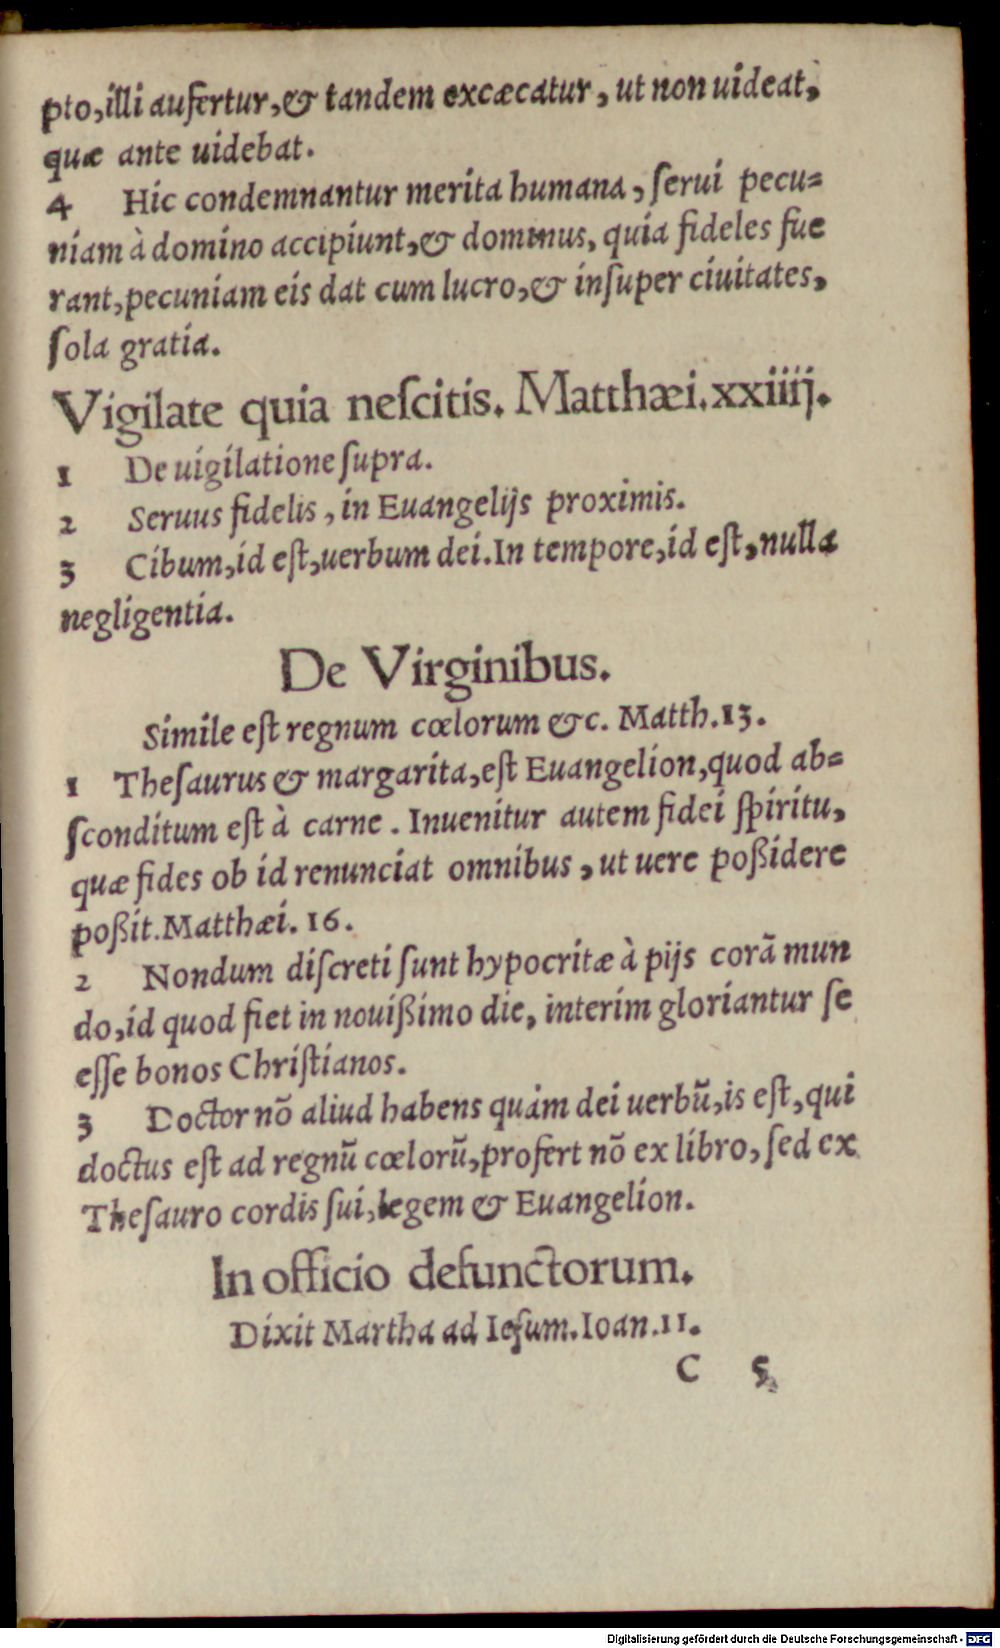 pto,illi aufertur,& tandem excæcatur, ut non uideat,
quæ ante uidebat.
4 Hic condemnantur merita humana, ſerui pecu=
niam à domino accipiunt,& dominus, quia fideles fue
rant,pecuniam eis dat cum lucro,& inſuper ciuitates,
ſola gratia.
Vigilate quia neſcitis. Matthæi.xxiiij.
1 De uigilatione ſupra.
2 Seruus fidelis, in Euangelijs proximis.
3 Cibum,id eſt,uerbum dei.In tempore,id eſt,nulla
negligentia.
De Virginibus.
Simile eſt regnum cœlorum &c. Matth.13.
1 Theſaurus & margarita,eſt Euangelion,quod ab=
ſconditum eſt à carne. Inuenitur autem fidei ſpiritu,
quæ fides ob id renunciat omnibus, ut uere poßidere
poßit.Matthæi. 16.
2 Nondum diſcreti ſunt hypocritæ à pijs corã mun
do,id quod fiet in nouißimo die, interim gloriantur ſe
eſſe bonos Chriſtianos.
3 Doctor nõ aliud habens quàm dei uerbũ,is eſt,qui
doctus eſt ad regnũ cœlorũ,profert nõ ex libro, ſed ex
Theſauro cordis ſui,legem & Euangelion.
In officio defunctorum.
Dixit Martha ad Ieſum.Ioan.11.
C 5
Digitalisierung gefördert durch die Deutsche Forschungsgemeinschaft - DFG